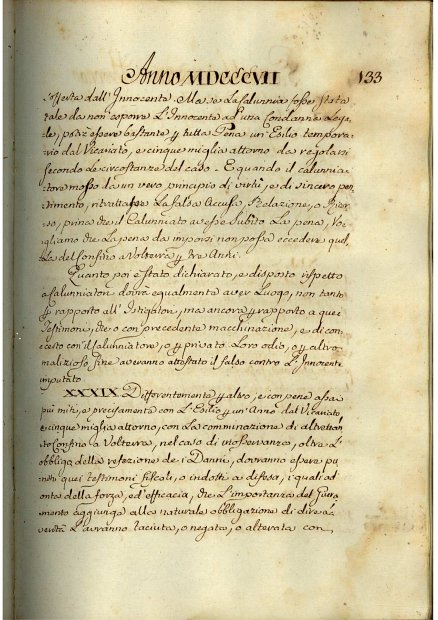 Anno MDCCCVII 133
sofferta dall'Innocente. Ma se la Calunnia fosse stata
tale da non esporre l'Innocente ad una Condanna Lega-
le, potrà essere bastante p tutta Pena un'Esilio tempora-
rio dal Vicariato, e cinque miglia attorno da regolarsi
secondo le circostanze del caso. E quando il calunnia-
tore mosso da un vero principio di virtù, e di sincero pen-
timento, ritrattasse la falsa Accusa, Relazione, o
prima che il Calunniato avesse subito la pena, Vo-
gliamo che la pena da imporsi non possa eccedere quel-
la del Confino a Volterra p tre Anni.
Quanto poi è stato dichiarato, e disposto rispetto
a Calunniatori dovrà egualmente aver luogo, non tanto
p rapporto all'Istigatori, ma ancora p rapporto a quei
Testimoni, che o con precedente macchinazione, e di con-
certo con il Calunniatore, o p privato Loro odio, o p altro
malizioso fine averanno attestato il falso contro l'Innocente
imputato.
XXXIX. Differentemente p altro, e con pene assai
più miti, e precisamente con l'Esilio p un'Anno dal Vicariato,
e cinque miglia attorno, con la comminazione di altrettanto
Confino a Volterra, nel caso di inosservanza, oltre l'
obbligo della refezione de i Danni, dovranno essere pu-
niti quei testimoni fiscali, o indotti a difesa, i quali ad
onta della forza, ed efficacia, che l'importanza del Giura-
mento aggiunge alla naturale obbligazione di dire la
verità l'avranno taciuta, o negata, o alterata con